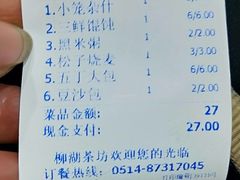 1.小笼杂什 1 6/6.00
2.三鲜馄饨 1 2/2.00
3.黑米粥 1
4.松子烧麦 1 3/3.00
5.五丁大包 1 6/6.00
6.豆沙包 1 2/2.00
菜品金额: 27
现金支付: 27.00
柳湖茶坊欢迎您的光临
订餐热线: 0514-87317045